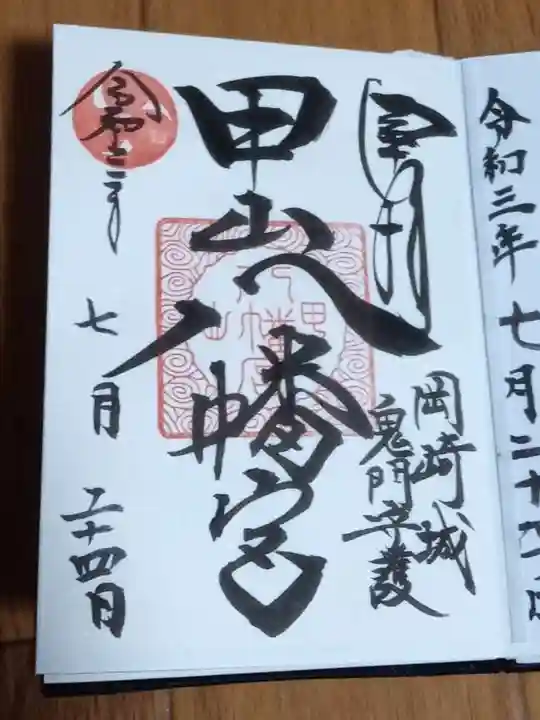 令和三年七月二十
奉拝
岡崎城
鬼門守護
甲山八幡宮
令和三年
七月
二十四日